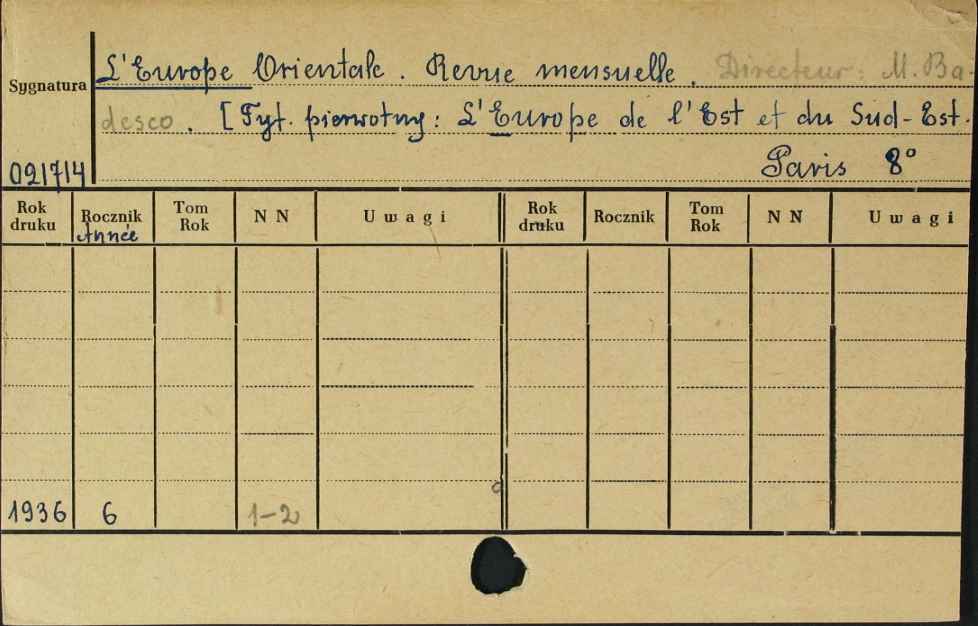 L'Europe Orientale. Revue mensuelle. Directeur: M. Ba-
Sygnatura
desco. [Tyt. pierwotny: L'Europe de l'Est et du Sud-Est.
021714
Paris 8°
Rok druku Rocznik Année Tom Rok N N Uwagi Rok druku Rocznik Tom Rok N N Uwagi
1936 6 1-2